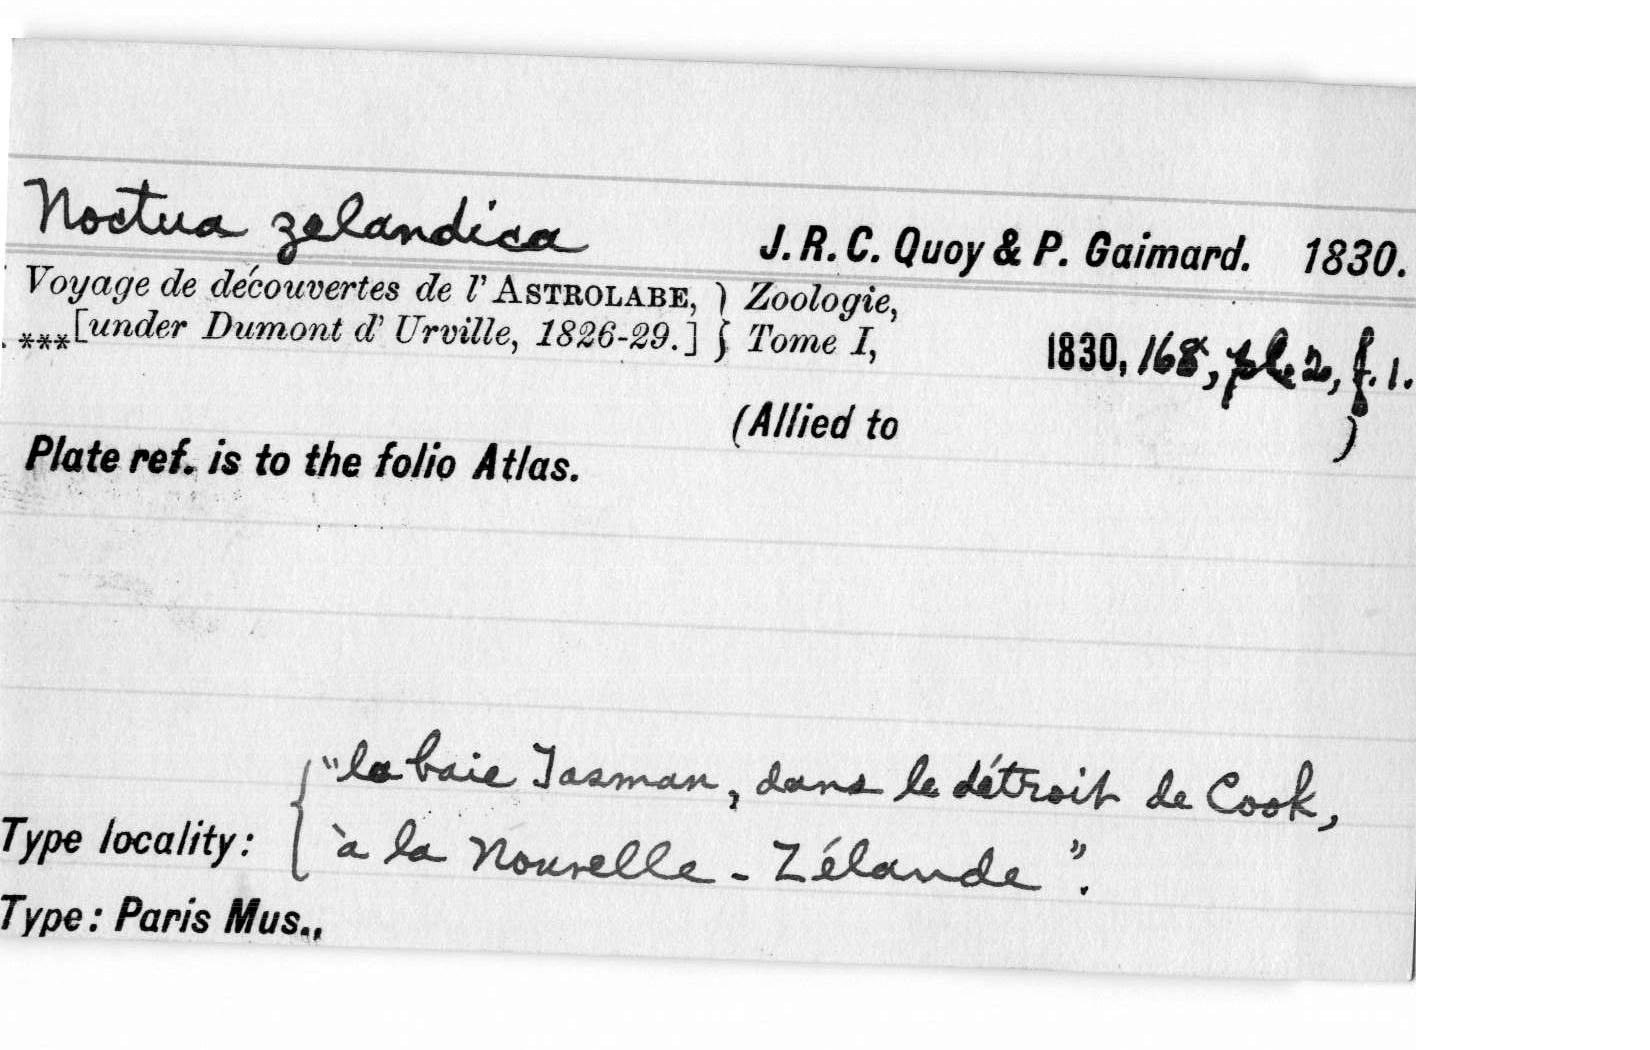 Noctua zelandica J. R. C. Quoy & P. Gaimard. 1830.
Voyage de découvertes de l' ASTROLABE, } Zoologie,
***[under Dumont d' Urville, 1826-29.] } Tome I, 1830, 168, pl. 2, f. 1.
(Allied to )
Plate ref. is to the folio Atlas.
"la baie Tasman, dans le détroit de Cook,
Type locality: { à la Nouvelle-Zélande".
Type: Paris Mus.,